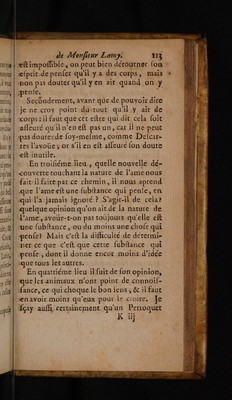 de Monsieur Lamy. 213
est impossible, on peut bien détourner son
esprit de penser qu'il y a des corps, mais
non pas douter qu'il y en ait quand on y
pense.
Secondement, avant que de pouvoir dire
je ne croy point du tout qu'il y ait de
corps: il faut que cet estre qui dit cela soit
asseuré qu'il n'en est pas un, car il ne peut
pas douter de soy-mesme, comme Descar-
tes l'avoüe; or s'il en est asseuré son doute
est inutile.
En troisiéme lieu, quelle nouvelle dé-
couverte touchant la nature de l'ame nous
fait-il faire par ce chemin, il nous aprend
que l'ame est une substance qui pense, en
qui l'a jamais ignoré? S'agit-il de cela?
quelque opinion qu'on ait de la nature de
l'ame, avoüe-t-on pas toujours qu'elle est
une substance, ou du moins une chose qui
pense? Mais c'est la difficulté de détermi-
ner ce que c'est que cette substance qui
pense, dont il donne encor moins d'idée
que tous les autres.
En quatriéme lieu il suit de son opinion,
que les animaux n'ont point de connois-
sance, ce qui choque le bon sens, & il faut
en avoir moins qu'eux pour le croire. Je
sçay aussi certainement qu'un Perroquet
K iij